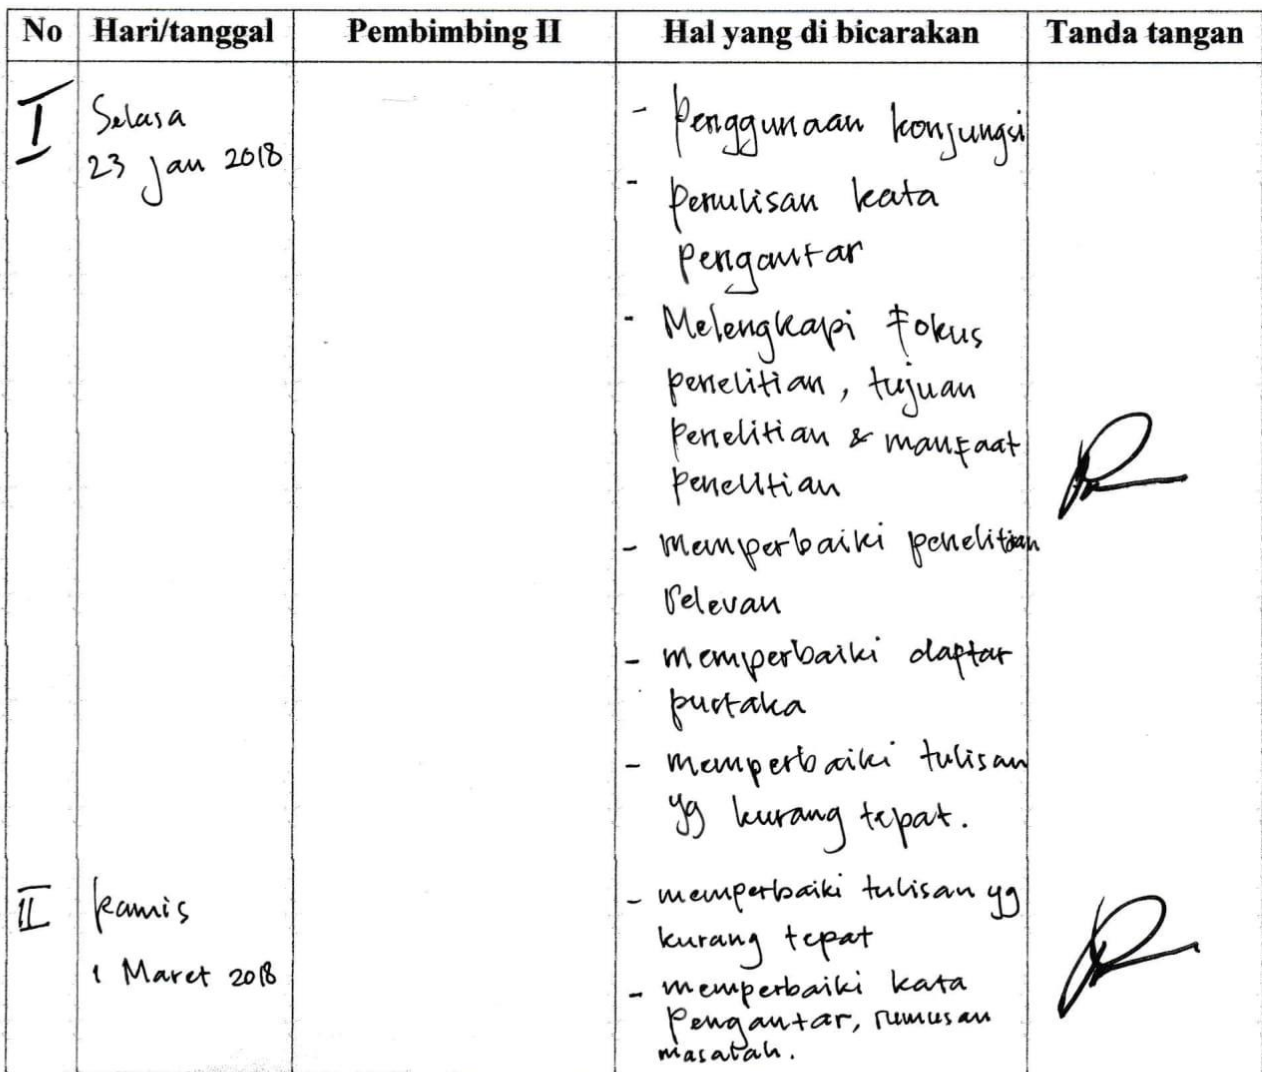 No Hari/tanggal Pembimbing II Hal yang di bicarakan Tanda tangan
I Selasa - Penggunaan konjungsi
23 Jan 2018
- Penulisan kata
Pengantar
- Melengkapi Fokus
penelitian, tujuan
Penelitian & manfaat
Penelitian
- memperbaiki penelitian
relevan
- memperbaiki daftar
pustaka
- memperbaiki tulisan
yg kurang tepat.
II Kamis - memperbaiki tulisan yg
kurang tepat
1 Maret 2018 - memperbaiki kata
Pengantar, rumusan
masalah.